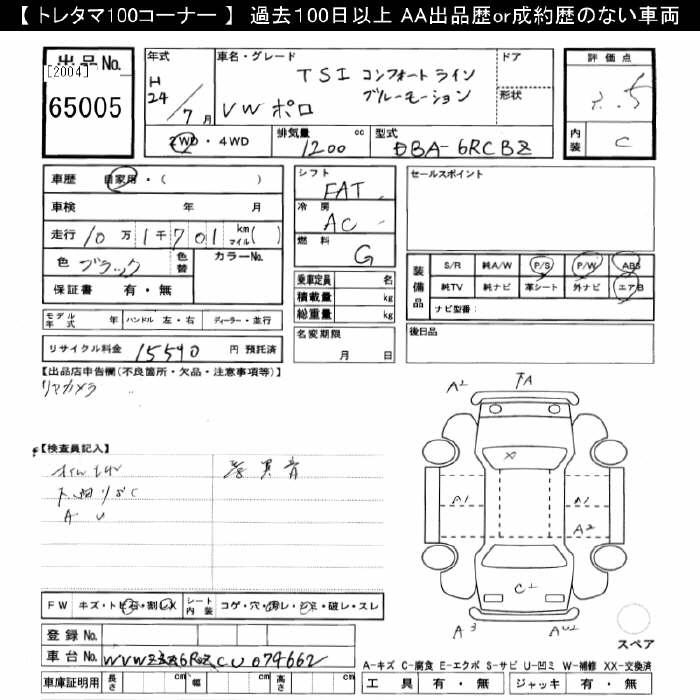 【 トレタマ100コーナー 】 過去100日以上 AA出品歴or成約歴のない車両
出品No.
[2004]
65005
年式
H
24/7月
車名・グレード
TSI コンフォートライン
ブルーモーション
VW ポロ
ドア
形状
評価点
3.5
内装
C
2WD・4WD
排気量 1200 cc
型式 DBA-6RCBZ
車歴 自家用・( )
車検 年 月
走行 10万1千701 km マイル( )
色 ブラック 色替 カラーNo.
保証書 有・無
シフト FAT
冷房 AC
燃料 G
乗車定員 名
積載量 kg
総重量 kg
セールスポイント
装備品
S/R 純A/W P/S P/W ABS
純TV 純ナビ 革シート 外ナビ エアB
ナビ型番:
モデル年式 年 ハンドル 左・右 ディーラー・並行
名変期限
月 日
後日品
リサイクル料金 15540 円 預託済
【出品店申告欄(不良箇所・欠品・注意事項等)】
リアカメラ
A2
A1
A1
A2
C1
A3
スペア
【検査員記入】
異音
FW キズ・トビ石・割レX シート内装 コゲ・穴・汚レ・シミ・破レ・スレ
登録No.
車台No. WVWZZZ6RZCU079662
車庫証明用 長さ cm 幅 cm 高さ cm
A-キズ C-腐食 E-エクボ S-サビ U-凹ミ W-補修 XX-交換済
工具 有・無 ジャッキ 有・無